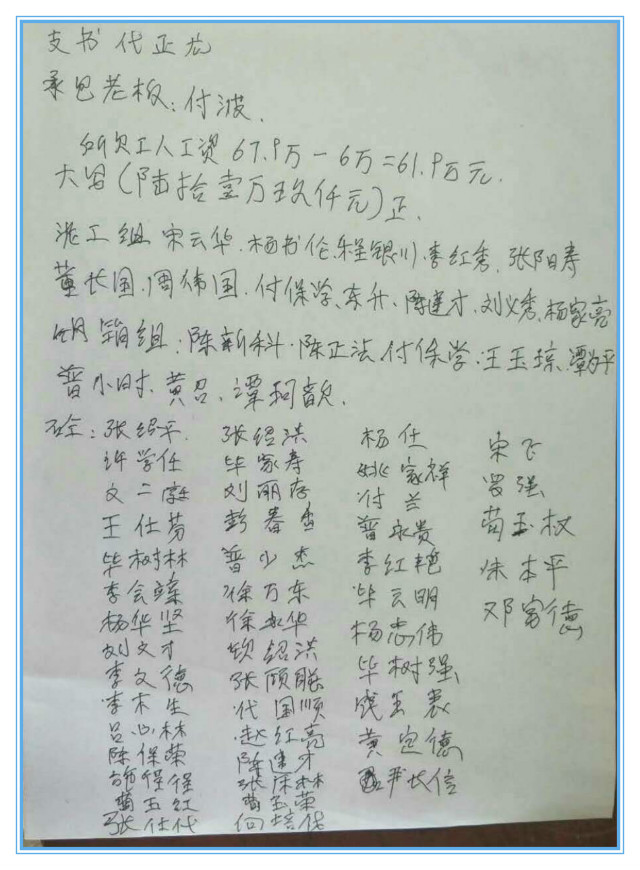 支书 代正龙
承包老板：付波.
所欠工人工资 67.9万-6万=61.9万元.
大写(陆拾壹万玖仟元)正.
混工组 宋云华.杨书伦.程银川.李红秀.张阳寿
董长国.周伟国.付保学.东升.陈建才.刘义秀.杨家亮
组：陈新科.陈正法.付保学.王玉琼.谭平
普小时.黄召.谭柯歆.
砼：张绍平. 张绍洪 杨仕 宋飞
许学任 毕家寿 姚家祥 罗强
文二 刘丽存 付兰 苟玉权
王仕芬 彭春 普永贵 朱本平
毕树林 普少杰 李红艳 邓富德
李会 徐万东 毕云明
杨华坚 徐永华 杨志伟
刘文才 钦绍洪 毕树强
李文德 张顾 饶玉表
李木生 代国顺 黄定德
吕心林 赵红亮 严长信
陈保荣 陈建才
保保 张林
苟玉红 苟玉荣
张仕代 向培